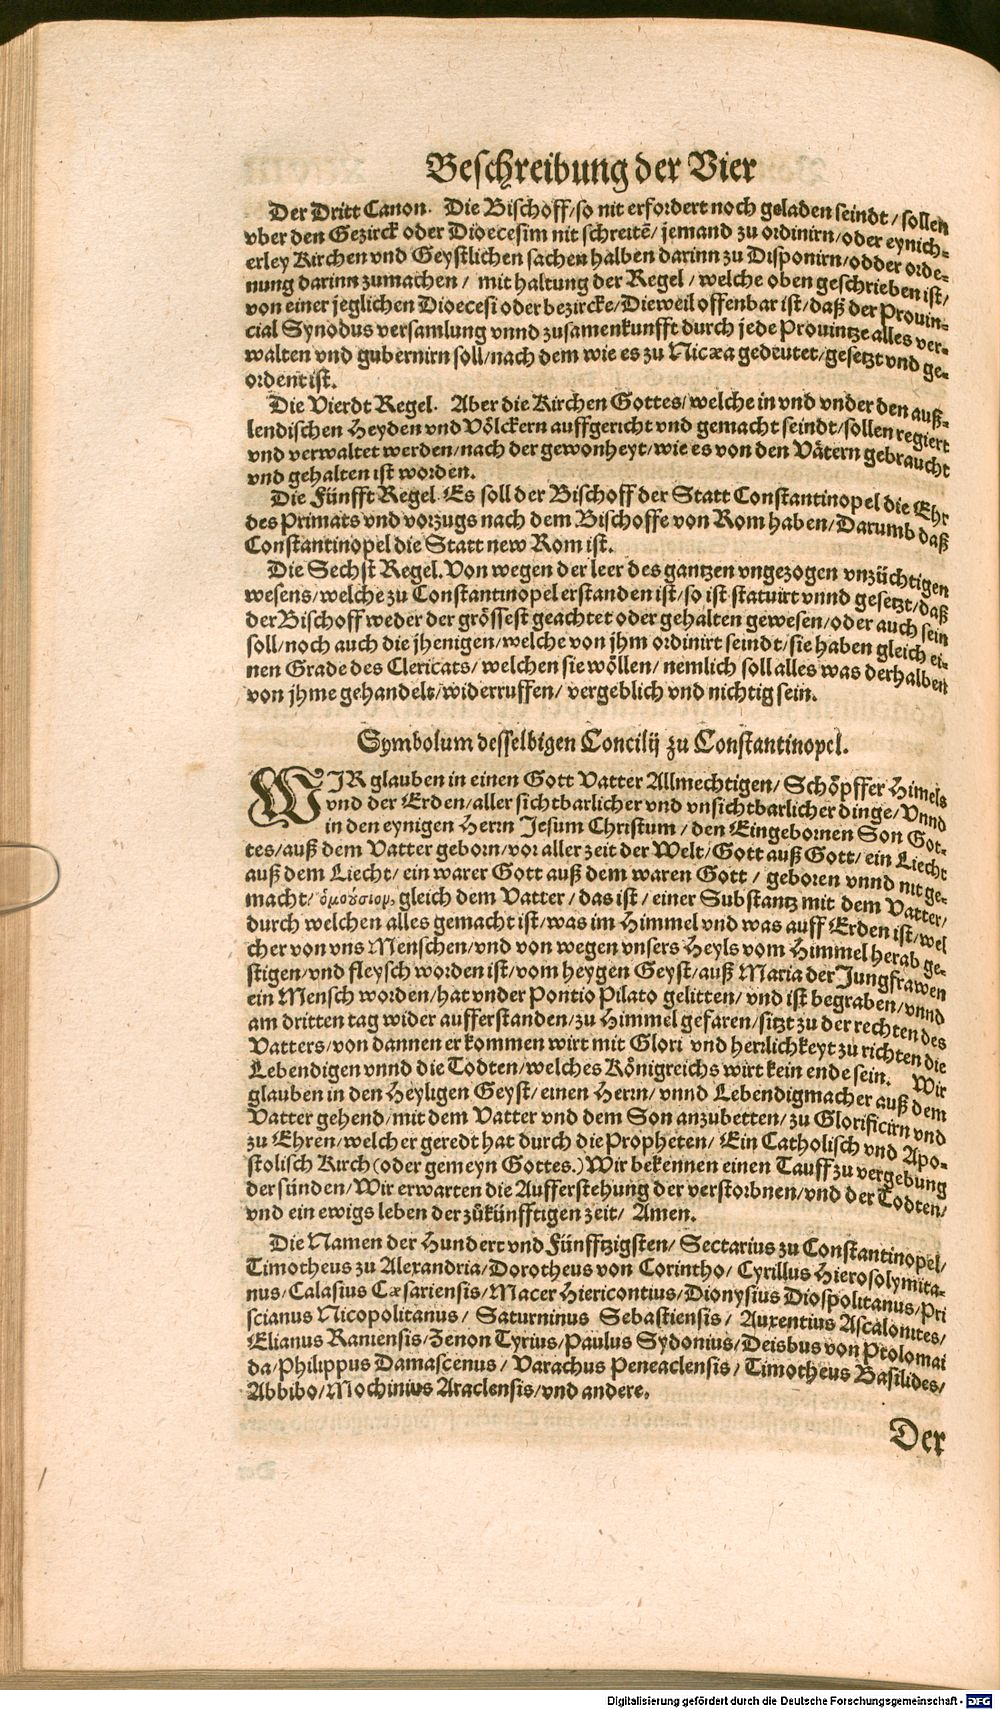 Beschreibung der Vier
Der Dritt Canon. Die Bischoff/so nit erfordert noch geladen seindt/sollen
vber den Gezirck oder Dioecesim nit schreitē/jemand zu ordinirn/oder eynich-
erley Kirchen vnd Geystlichen sachen halben darinn zu Disponirn/odder orde-
nung darinn zumachen/ mit haltung der Regel/ welche oben geschrieben ist/
von einer jeglichen Dioecesi oder bezircke/Dieweil offenbar ist/daß der Prouin-
cial Synodus versamlung vnnd zusamenkunfft durch jede Prouintze alles ver-
walten vnd gubernirn soll/nach dem wie es zu Nicæa gedeutet/gesetzt vnd ge-
ordent ist.
Die Vierdt Regel. Aber die Kirchen Gottes/welche in vnd vnder den auß-
lendischen Heyden vnd Völckern auffgericht vnd gemacht seindt/sollen regiert
vnd verwaltet werden/nach der gewonheyt/wie es von den Vätern gebraucht
vnd gehalten ist worden.
Die Fünfft Regel. Es soll der Bischoff der Statt Constantinopel die Ehr
des Primats vnd vorzugs nach dem Bischoffe von Rom haben/Darumb daß
Constantinopel die Statt new Rom ist.
Die Sechst Regel. Von wegen der leer des gantzen vngezogen vnzüchtigen
wesens/welche zu Constantinopel erstanden ist/so ist statuirt vnnd gesetzt/daß
der Bischoff weder der grössest geachtet oder gehalten gewesen/oder auch sein
soll/noch auch die jhenigen/welche von jhm ordinirt seindt/sie haben gleich ei-
nen Grade des Clericats/welchen sie wöllen/nemlich soll alles was derhalben
von jhme gehandelt/widerruffen/vergeblich vnd nichtig sein.
Symbolum desselbigen Concilij zu Constantinopel.
WIR glauben in einen Gott Vatter Allmechtigen/Schöpffer Himels
vnd der Erden/aller sichtbarlicher vnd vnsichtbarlicher dinge/Vnnd
in den eynigen Herrn Jesum Christum/den Eingebornen Son Got-
tes/auß dem Vatter geborn/vor aller zeit der Welt/Gott auß Gott/ein Liecht
auß dem Liecht/ein warer Gott auß dem waren Gott/ geboren vnnd nit ge-
macht/ ὁμούσιον, gleich dem Vatter/das ist/einer Substantz mit dem Vatter/
durch welchen alles gemacht ist/was im Himmel vnd was auff Erden ist/wel
cher von vns Menschen/vnd von wegen vnsers Heyls vom Himmel herab ge-
stigen/vnd fleysch worden ist/vom heygen Geyst/auß Maria der Jungfrawen
ein Mensch worden/hat vnder Pontio Pilato gelitten/vnd ist begraben/vnnd
am dritten tag wider aufferstanden/zu Himmel gefaren/sitzt zu der rechten des
Vatters/von dannen er kommen wirt mit Glori vnd herrlichkeyt zu richten die
Lebendigen vnnd die Todten/welches Königreichs wirt kein ende sein. Wir
glauben in den Heyligen Geyst/einen Herrn/vnnd Lebendigmacher auß dem
Vatter gehend/mit dem Vatter vnd dem Son anzubetten/zu Glorificirn vnd
zu Ehren/welcher geredt hat durch die Propheten/Ein Catholisch vnd Apo-
stolisch Kirch(oder gemeyn Gottes.) Wir bekennen einen Tauff zu vergebung
der sünden/Wir erwarten die Aufferstehung der verstorbnen/vnd der Todten/
vnd ein ewigs leben der zůkünfftigen zeit/ Amen.
Die Namen der Hundert vnd Fünfftzigsten/Sectarius zu Constantinopel/
Timotheus zu Alexandria/Dorotheus von Corintho/Cyrillus Hierosolymita-
nus/Calasius Cæsariensis/Macer Hiericontius/Dionysius Diospolitanus/Pri
scianus Nicopolitanus/ Saturninus Sebastiensis/ Auxentius Ascalonites/
Elianus Raniensis/Zenon Tyrius/Paulus Sydonius/Deisbus von Ptolomai
da/Philippus Damascenus/Varachus Peneaclensis/Timotheus Basilides/
Abbibo/Mochinius Araclensis/vnd andere.
Der
Digitalisierung gefördert durch die Deutsche Forschungsgemeinschaft - DFG